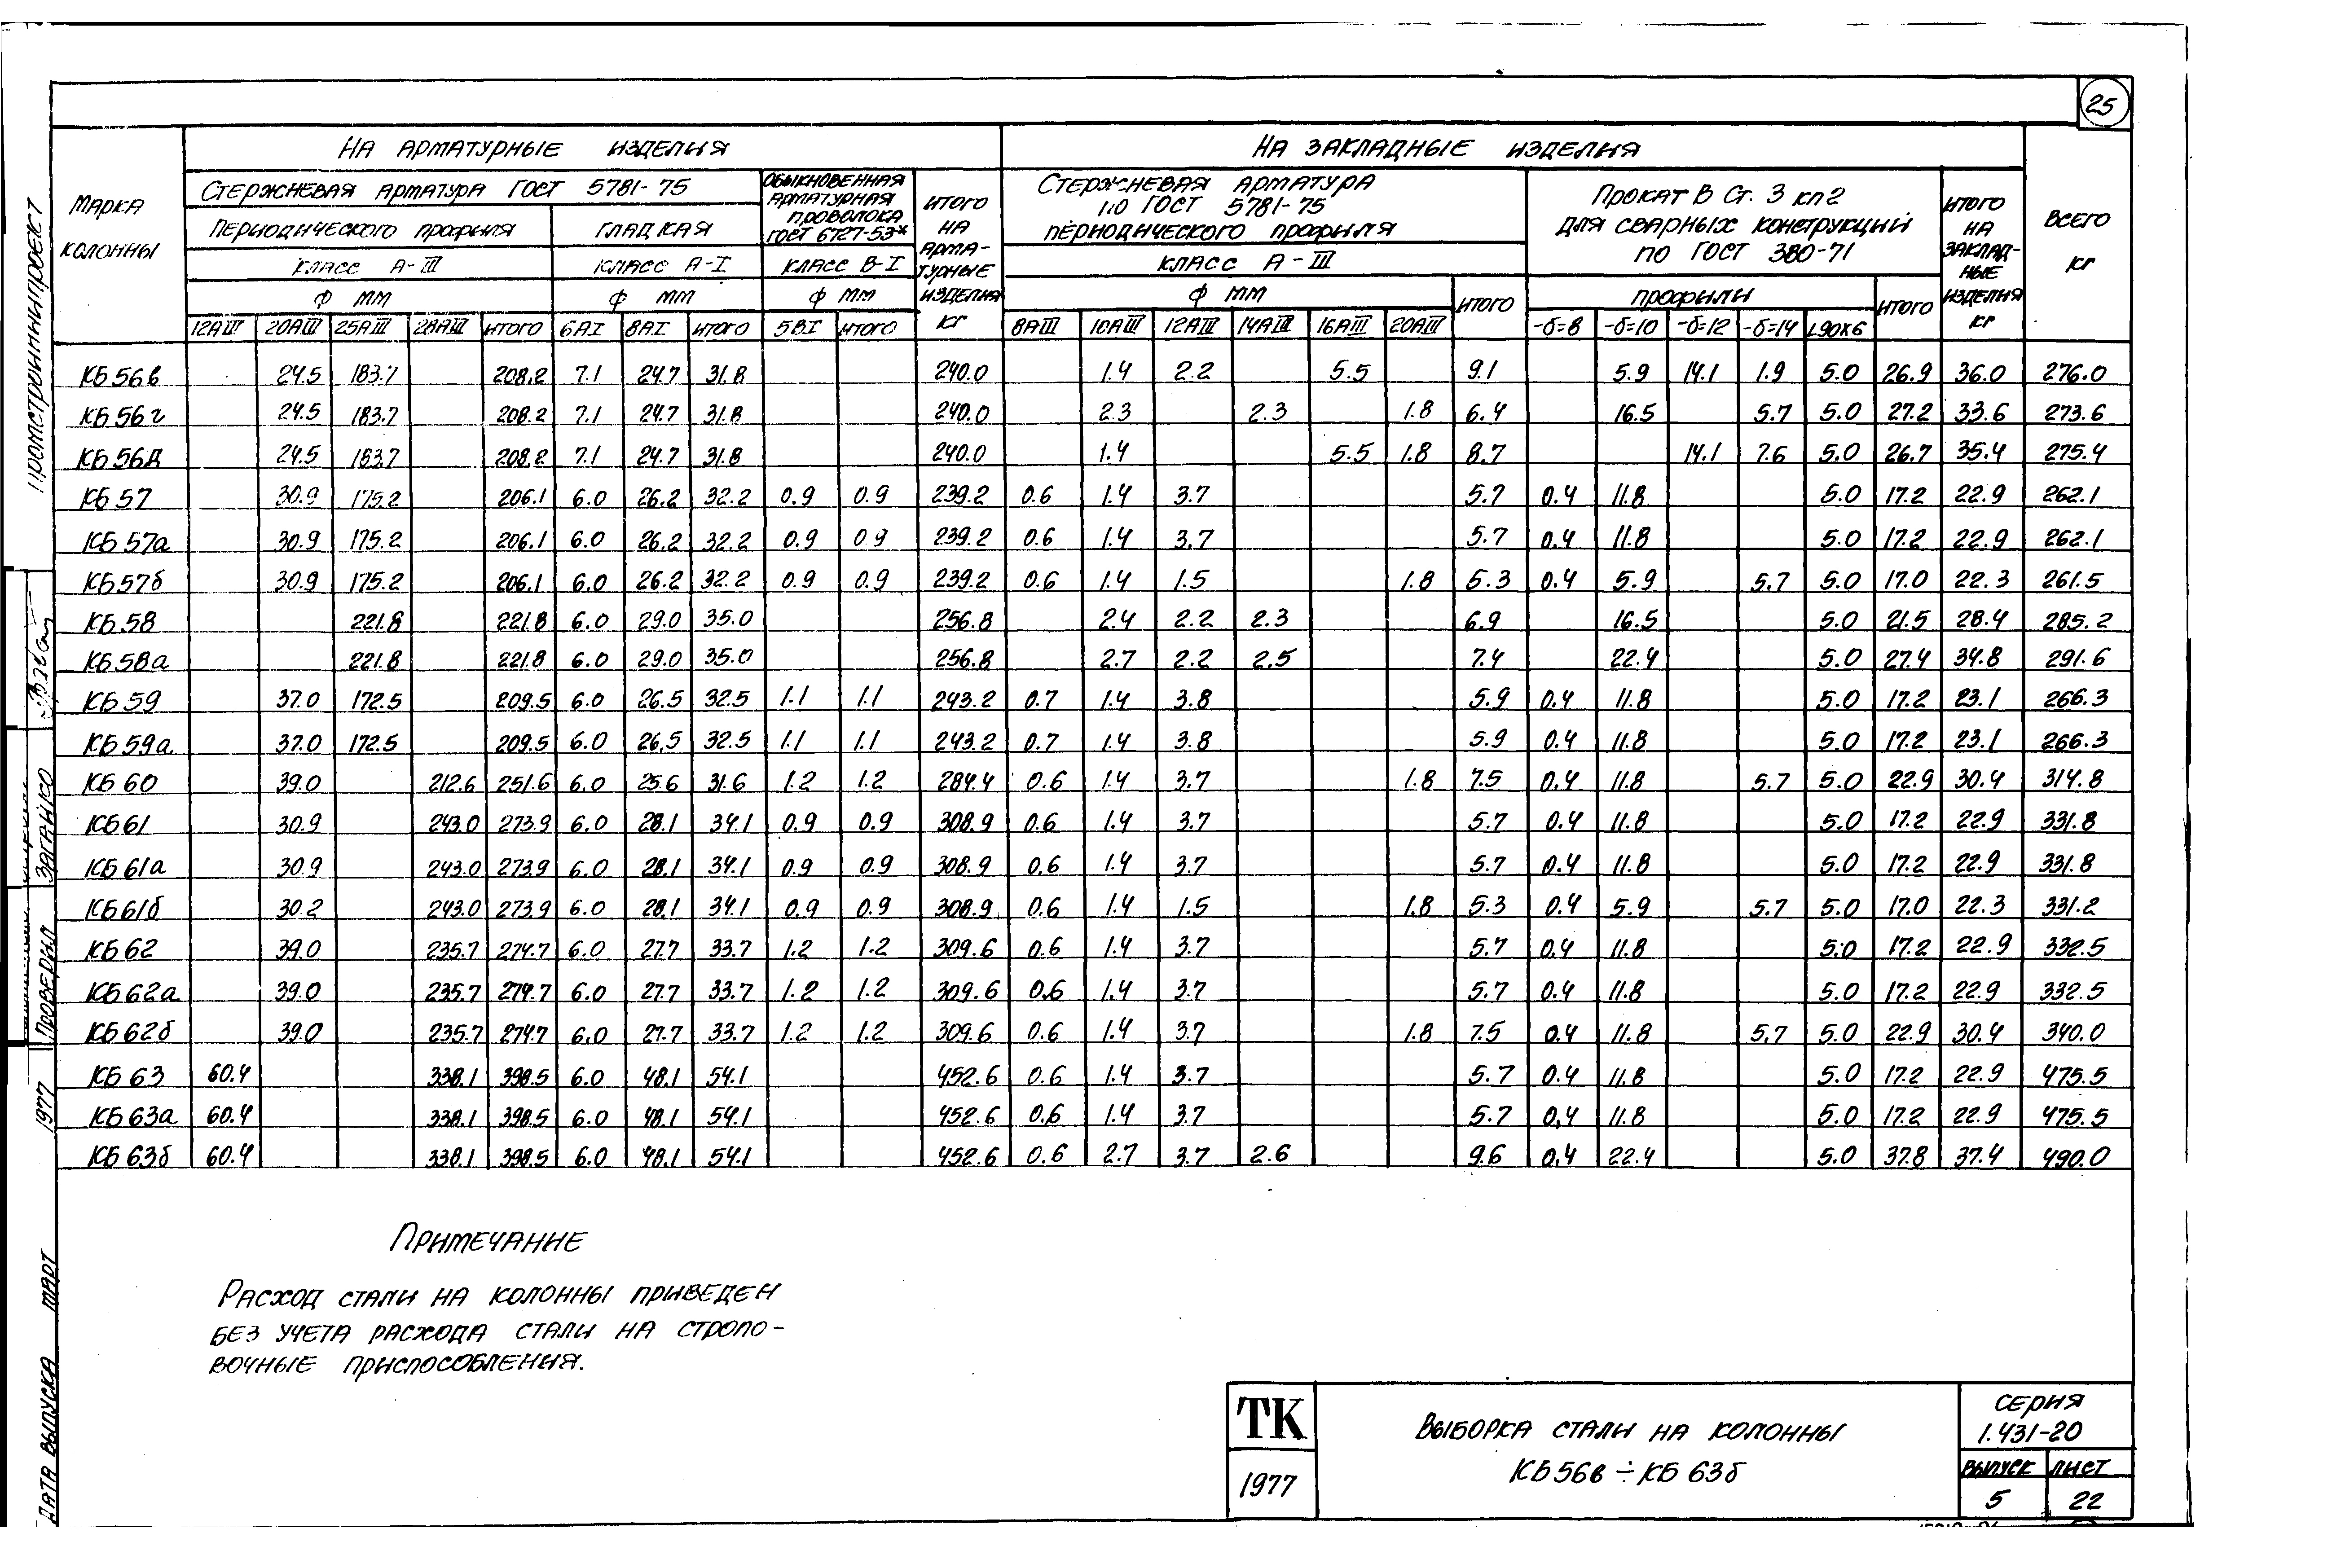 25
На арматурные изделия
На закладные изделия
Марка колонны
Стержневая арматура ГОСТ 5781-75
Обыкновенная арматурная проволока ГОСТ 6727-53*
Итого на арматурные изделия кг
Стержневая арматура по ГОСТ 5781-75 периодического профиля
Прокат В Ст. 3 кп2 для сварных конструкций по ГОСТ 380-71
Итого на закладные изделия кг
Всего кг
Периодического профиля
Гладкая
Класс А-III
Класс А-I
Класс В-I
Класс А-III
ф мм
ф мм
ф мм
ф мм
Итого
профили
Итого
12АIII 20АIII 25АIII 28АIII Итого 6АI 8АI Итого 5ВI Итого 8АIII 10АIII 12АIII 14АIII 16АIII 20АIII -δ=8 -δ=10 -δ=12 -δ=14 L90х6
КБ56в 24.5 183.7 208.2 7.1 24.7 31.8 240.0 1.4 2.2 5.5 9.1 5.9 14.1 1.9 5.0 26.9 36.0 276.0
КБ56г 24.5 183.7 208.2 7.1 24.7 31.8 240.0 2.3 2.3 1.8 6.4 16.5 5.7 5.0 27.2 33.6 273.6
КБ56д 24.5 183.7 208.2 7.1 24.7 31.8 240.0 1.4 5.5 1.8 8.7 14.1 7.6 5.0 26.7 35.4 275.4
КБ57 30.9 175.2 206.1 6.0 26.2 32.2 0.9 0.9 239.2 0.6 1.4 3.7 5.7 0.4 11.8 5.0 17.2 22.9 262.1
КБ57а 30.9 175.2 206.1 6.0 26.2 32.2 0.9 0.9 239.2 0.6 1.4 3.7 5.7 0.4 11.8 5.0 17.2 22.9 262.1
КБ57б 30.9 175.2 206.1 6.0 26.2 32.2 0.9 0.9 239.2 0.6 1.4 1.5 1.8 5.3 0.4 5.9 5.7 5.0 17.0 22.3 261.5
КБ58 221.8 221.8 6.0 29.0 35.0 256.8 2.4 2.2 2.3 6.9 16.5 5.0 21.5 28.4 285.2
КБ58а 221.8 221.8 6.0 29.0 35.0 256.8 2.7 2.2 2.5 7.4 22.4 5.0 27.4 34.8 291.6
КБ59 37.0 172.5 209.5 6.0 26.5 32.5 1.1 1.1 243.2 0.7 1.4 3.8 5.9 0.4 11.8 5.0 17.2 23.1 266.3
КБ59а 37.0 172.5 209.5 6.0 26,5 32.5 1.1 1.1 243.2 0.7 1.4 3.8 5.9 0.4 11.8 5.0 17.2 23.1 266.3
КБ60 39.0 212.6 251.6 6.0 25.6 31.6 1.2 1.2 284.4 0.6 1.4 3.7 1.8 7.5 0.4 11.8 5.7 5.0 22.9 30.4 314.8
КБ61 30.9 243.0 273.9 6.0 28.1 34.1 0.9 0.9 308.9 0.6 1.4 3.7 5.7 0.4 11.8 5.0 17.2 22.9 331.8
КБ61а 30.9 243.0 273.9 6.0 28.1 34.1 0.9 0.9 308.9 0.6 1.4 3.7 5.7 0.4 11.8 5.0 17.2 22.9 331.8
КБ61б 30.2 243.0 273.9 6.0 28.1 34.1 0.9 0.9 308.9 0.6 1.4 1.5 1.8 5.3 0.4 5.9 5.7 5.0 17.0 22.3 331.2
КБ62 39.0 235.7 274.7 6.0 27.7 33.7 1.2 1.2 309.6 0.6 1.4 3.7 5.7 0.4 11.8 5.0 17.2 22.9 332.5
КБ62а 39.0 235.7 274.7 6.0 27.7 33.7 1.2 1.2 309.6 0.6 1.4 3.7 5.7 0.4 11.8 5.0 17.2 22.9 332.5
КБ62б 39.0 235.7 274.7 6.0 27.7 33.7 1.2 1.2 309.6 0.6 1.4 3.7 1.8 7.5 0.4 11.8 5.7 5.0 22.9 30.4 340.0
КБ63 60.4 338.1 398.5 6.0 48.1 54.1 452.6 0.6 1.4 3.7 5.7 0.4 11.8 5.0 17.2 22.9 475.5
КБ63а 60.4 338.1 398.5 6.0 48.1 54.1 452.6 0.6 1.4 3.7 5.7 0,4 11.8 5.0 17.2 22.9 475.5
КБ63б 60.4 338.1 398.5 6.0 48.1 54.1 452.6 0.6 2.7 3.7 2.6 9.6 0,4 22.4 5.0 37.8 37.4 490.0
Примечание
Расход стали на колонны приведен
без учета расхода стали на стропо-
вочные приспособления.
ТК
1977
Выборка стали на колонны
КБ56в ÷ КБ63б
Серия
1.431-20
выпуск лист
5 22
Промстройниипроект
Проверил
Дата выпуска март 1977